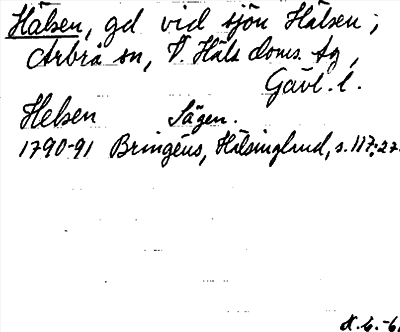 Hälsen, gd vid sjön Hälsen;
Arbrå sn, V. Häls doms. tg,
Gävl. l.
Helsen Sägen.
1790-91 Bringéus, Hälsingland, s. 117:27.